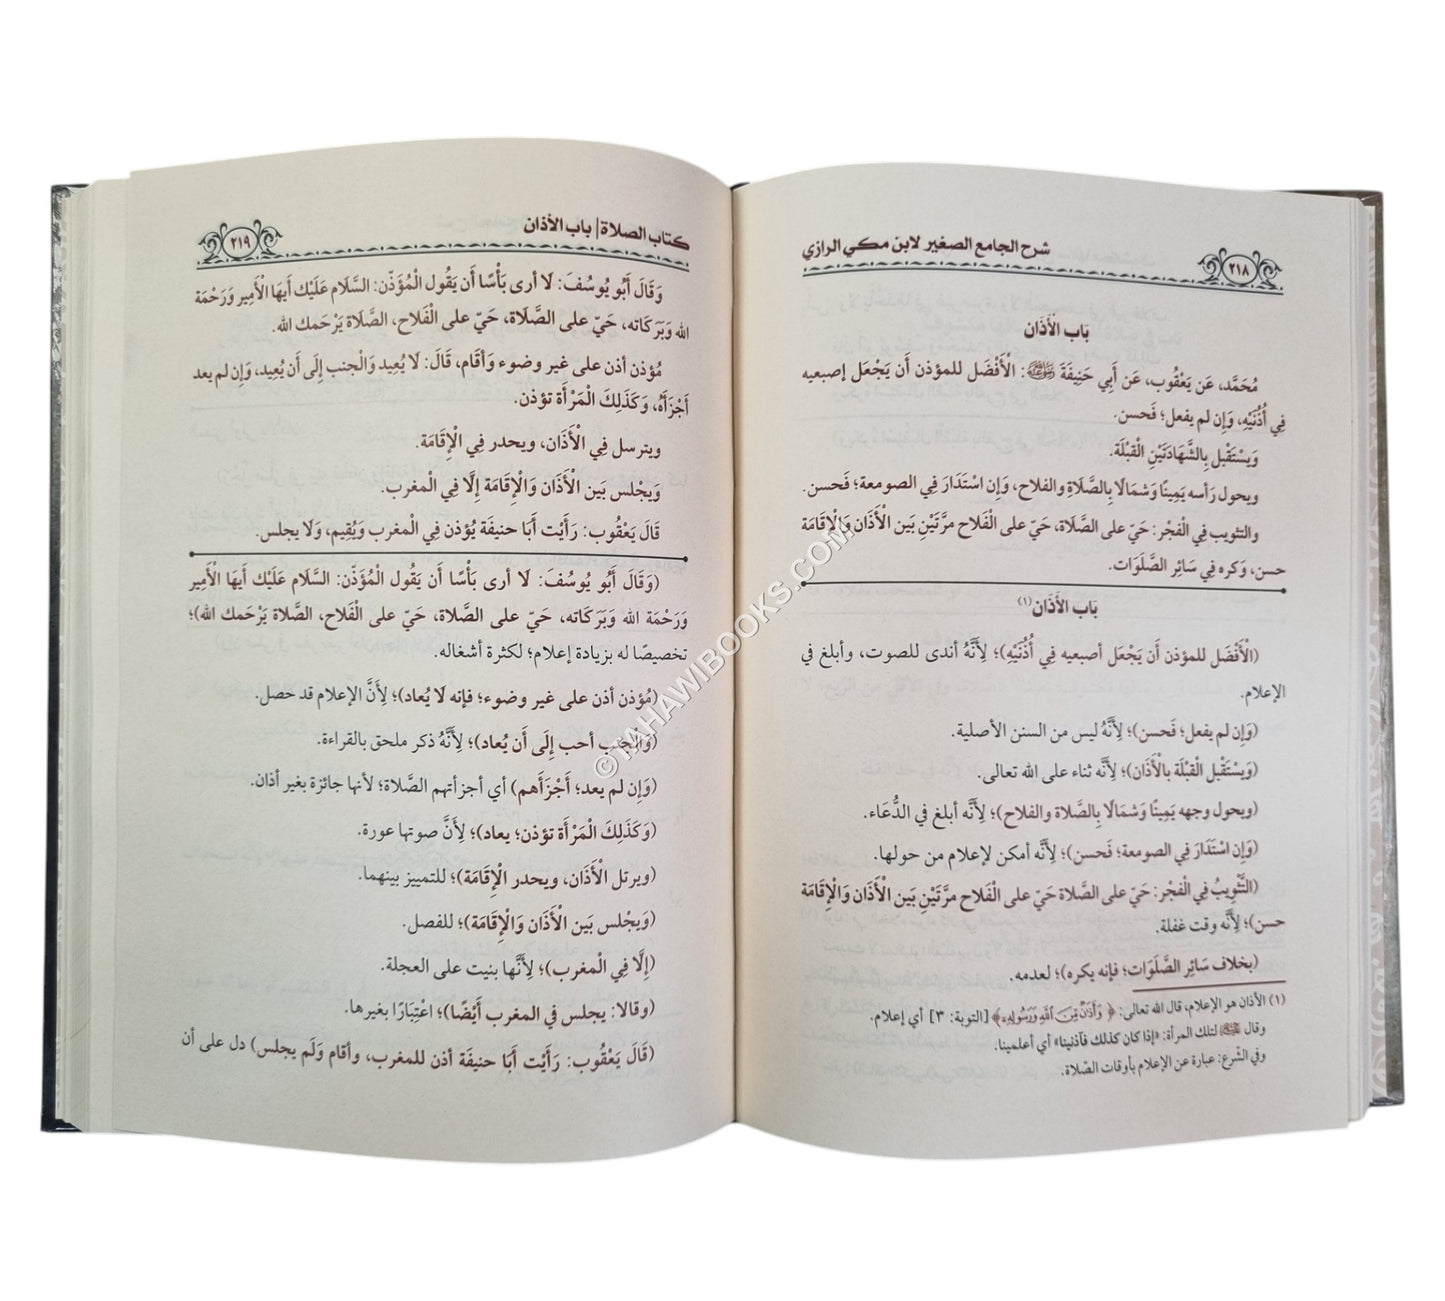 شرح الجامع الصغير لابن مكي الرازي
٢١٨
بَاب الْأَذَان
مُحَمَّد، عَن يَعْقُوب، عَن أَبِي حَنِيفَة رضي الله عنه: الْأَفْضَل للمؤذن أَن يَجْعَل إصبعيه
فِي أُذُنَيْهِ، وَإِن لم يفعل؛ فَحسن.
وَيسْتَقْبل بِالشَّهَادَتَيْنِ الْقبْلَة.
ويحول رَأسه يَمِينًا وَشمَالًا بِالصَّلَاةِ والفلاح، وَإِن اسْتَدَارَ فِي الصومعة؛ فَحسن.
والتثويب فِي الْفجْر: حَيّ على الصَّلَاة، حَيّ على الْفَلاح مرَّتَيْنِ بَين الْأَذَان وَالْإِقَامَة
حسن، وَكره فِي سَائِر الصَّلَوَات.
بَاب الْأَذَان(١)
(الْأَفْضَل للمؤذن أَن يَجْعَل أصبعيه فِي أُذُنَيْهِ)؛ لِأَنَّهُ أندى للصوت، وأبلغ في
الإعلام.
(وَإِن لم يفعل؛ فَحسن)؛ لِأَنَّهُ ليس من السنن الأصلية.
(وَيسْتَقْبل الْقبْلَة بِالْأَذَان)؛ لِأَنَّه ثناء على الله تعالى.
(ويحول وجهه يَمِينًا وَشمَالًا بِالصَّلَاة والفلاح)؛ لِأَنَّه أبلغ في الدُّعَاء.
(وَإِن اسْتَدَارَ فِي الصومعة؛ فَحسن)؛ لِأَنَّه أمكن لإعلام من حولها.
(التَّثْوِيبُ فِي الْفجْر: حَيّ على الصَّلاة حَيّ على الْفَلاح مرَّتَيْنِ بَين الْأَذَان وَالْإِقَامَة
حسن)؛ لِأَنَّه وقت غفلة.
(بخلاف سَائِر الصَّلَوَات؛ فإنه يكره)؛ لعدمه.
(١) الأذان هو الإعلام، قال الله تعالى: ﴿وَأَذَٰنٌ مِّنَ ٱللَّهِ وَرَسُولِهِۦ﴾ [التوبة: ٣] أي إعلام.
وقال ﷺ لتلك المرأة: «إذا كان كذلك فآذنينا» أي أعلمينا.
وفي الشّرع: عبارة عن الإعلام بأوقات الصّلاة.
كتاب الصلاة| باب الأذان
٢١٩
وَقَالَ أَبُو يُوسُفَ: لَا أرى بَأْسًا أَن يَقُول الْمُؤَذّن: السَّلَام عَلَيْك أَيهَا الْأَمِير وَرَحْمَة
الله وَبَرَكَاته، حَيّ على الصَّلَاة، حَيّ على الْفَلاح، الصَّلَاة يَرْحَمك الله.
مُؤذن أذن على غير وضوء وَأقَام، قَالَ: لَا يُعِيد وَالْجنب إِلَى أَن يُعِيد، وَإِن لم يعد
أَجْزَأَهُ، وَكَذَلِكَ الْمَرْأَة تؤذن.
ويترسل فِي الْأَذَان، ويحدر فِي الْإِقَامَة.
وَيجْلس بَين الْأَذَان وَالْإِقَامَة إِلَّا فِي الْمغرب.
قَالَ يَعْقُوب: رَأَيْت أَبَا حنيفَة يُؤذن فِي الْمغرب وَيُقِيم، وَلَا يجلس.
(وَقَالَ أَبُو يُوسُفَ: لَا أرى بَأْسًا أَن يَقُول الْمُؤَذّن: السَّلَام عَلَيْك أَيهَا الْأَمِير
وَرَحْمَة الله وَبَرَكَاته، حَيّ على الصَّلاة، حَيّ على الْفَلاح، الصَّلاة يَرْحَمك الله)؛
تخصيصًا له بزيادة إعلام؛ لكثرة أشغاله.
(مُؤذن أذن على غير وضوء؛ فإنه لَا يُعاد)؛ لِأَنَّ الإعلام قد حصل.
(وَالْجنب أحب إِلَى أَن يُعاد)؛ لِأَنَّهُ ذكر ملحق بالقراءة.
(وَإِن لم يعد؛ أَجْزَأَهم) أي أجزأتهم الصَّلاة؛ لأنها جائزة بغير أذان.
(وَكَذَلِكَ الْمَرْأَة تؤذن؛ يعاد)؛ لِأَنَّ صوتها عورة.
(ويرتل الْأَذَان، ويحدر الْإِقَامَة)؛ للتمييز بينهما.
(وَيجْلس بَين الْأَذَان وَالْإِقَامَة)؛ للفصل.
(إِلَّا فِي الْمغرب)؛ لِأَنَّها بنيت على العجلة.
(وقالا: يجلس في المغرب أَيْضًا)؛ اعْتِبَارًا بغيرها.
(قَالَ يَعْقُوب: رَأَيْت أَبَا حنيفَة أذن للمغرب، وأقام وَلَم يجلس) دل على أن
© MAHAWIBOOKS.COM